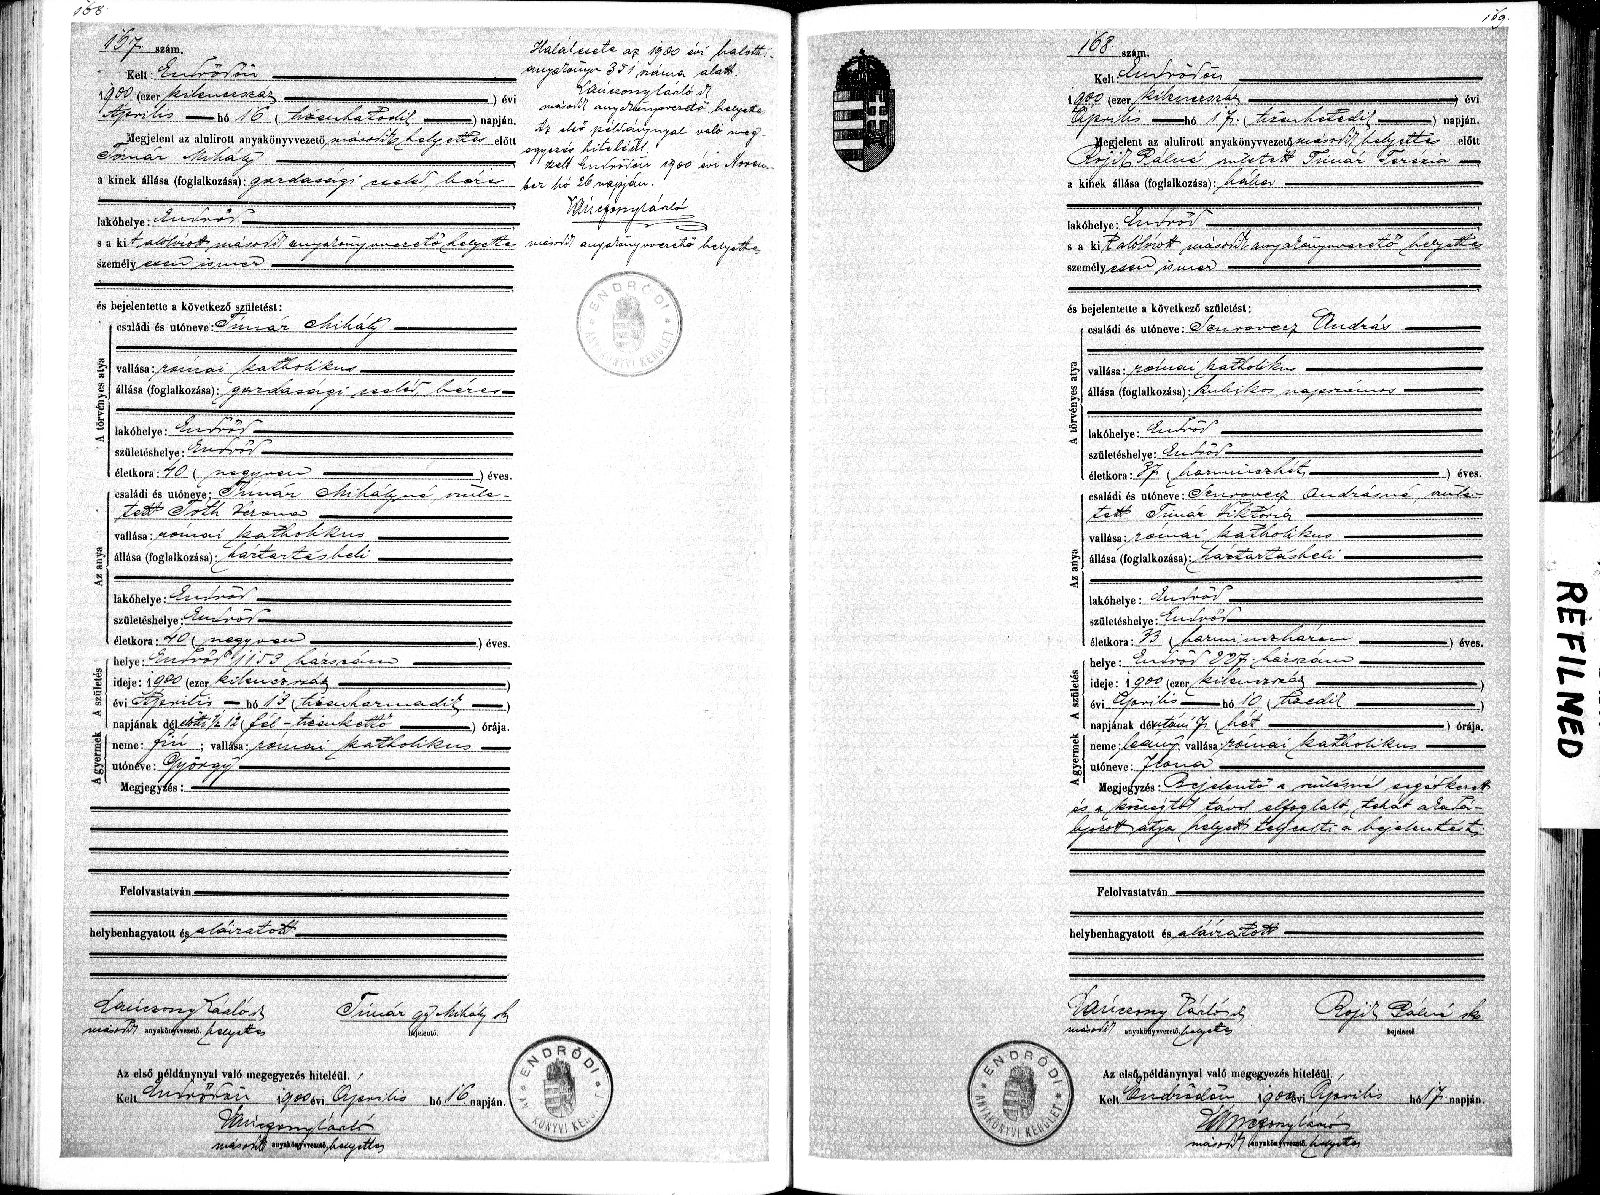 168
167 szám.
Kelt: Endrődön
1900 (ezer kilencszáz) évi
Április hó 16 (tizenhatodik) napján.
Megjelent az alulirott anyakönyvvezető második helyettes előtt
Timár Mihály
a kinek állása (foglalkozása): gazdasági cseléd, béres
lakóhelye: Endrőd
s a kit alólirott második anyakönyvvezető helyettes
személyesen ismer
és bejelentette a következő születést:
A törvényes atya
családi és utóneve: Timár Mihály
vallása: római katholikus
állása (foglalkozása): gazdasági cseléd, béres
lakóhelye: Endrőd
születéshelye: Endrőd
életkora: 40 (negyven) éves.
Az anya
családi és utóneve: Timár Mihályné szüle-
tett Tóth Verona
vallása: római katholikus
állása (foglalkozása): háztartásbeli
lakóhelye: Endrőd
születéshelye: Endrőd
életkora: 40 (negyven) éves.
A születés
helye: Endrőd 1153 házszám
ideje: 1900 (ezer kilencszáz)
évi Április hó 13 (tizenharmadik)
napjának délelőtti ½ 12 (fél-tizenkettő) órája.
A gyermek
neme: fiú; vallása: római katholikus
utóneve: György
Megjegyzés:
Felolvastatván
helybenhagyatott és aláiratott
Vaincsony László
második anyakönyvvezető. helyettes
Timár Mihály
bejelentő.
Az első példánynyal való megegyezés hiteléül.
Kelt Endrődön 1900 évi Április hó 16 napján.
második anyakönyvvezető, helyettes
ENDRŐDI ANYAKÖNYVI KERÜLET
Halálesete az 1900 évi halotti
anyakönyv 351 száma alatt.
második anyakönyvvezető helyettes
Az első példánynyal való meg-
egyezés hiteléül.
Kelt Endrődön 1900 évi Novem-
ber hó 26 napján.
második anyakönyvvezető helyettes
ENDRŐDI ANYAKÖNYVI KERÜLET
169
168 szám.
Kelt: Endrődön
1900 (ezer kilencszáz) évi
Április hó 17. (tizenhetedik) napján.
Megjelent az alulirott anyakönyvvezető második helyettes előtt
Rojik Pálné született Timár Terézia
a kinek állása (foglalkozása): bába
lakóhelye: Endrőd
s a kit alólirott második anyakönyvvezető helyettes
személyesen ismer
és bejelentette a következő születést:
A törvényes atya
családi és utóneve: Szurovecz András
vallása: római katholikus
állása (foglalkozása): kubikos napszámos
lakóhelye: Endrőd
születéshelye: Endrőd
életkora: 37 (harminczhét) éves.
Az anya
családi és utóneve: Szurovecz Andrásné szüle-
tett Timár Viktória
vallása: római katholikus
állása (foglalkozása): háztartásbeli
lakóhelye: Endrőd
születéshelye: Endrőd
életkora: 33 (harminczhárom) éves.
A születés
helye: Endrőd 227 házszám
ideje: 1900 (ezer kilencszáz)
évi Április hó 10 (tizedik)
napjának délutáni 7 (hét) órája.
A gyermek
neme: leány; vallása: római katholikus
utóneve: Ilona
Megjegyzés: Bejelentő a szülésnél segédkezett
és a községtől távol elfoglalt, tehát akadá-
lyozott atya helyett teljesíti a bejelentést.
Felolvastatván
helybenhagyatott és aláiratott
második anyakönyvvezető. helyettes
Rojik Pálné
bejelentő
Az első példánynyal való megegyezés hiteléül.
Kelt Endrődön 1900 évi Április hó 17 napján.
második anyakönyvvezető, helyettes
ENDRŐDI ANYAKÖNYVI KERÜLET
REFILMED